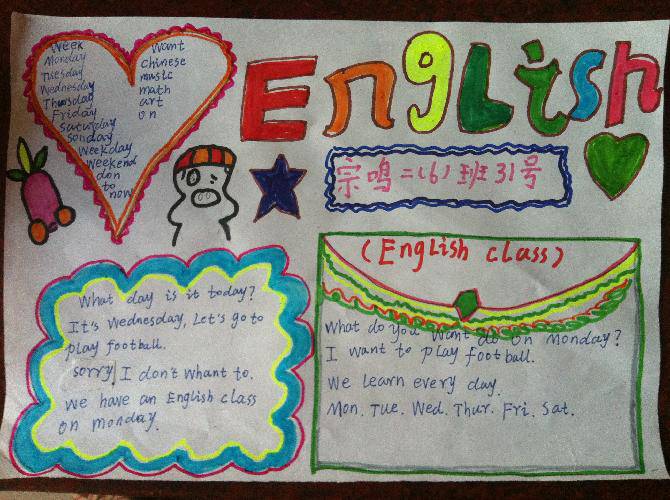 English
Week
Monday
Tuesday
Wednesday
Thursday
Friday
Saturday
Sonday
Weekday
Weekend
don
to
now
Want
Chinese
music
math
art
on
宗鸣二(6)班31号
What day is it today?
It's Wednesday, Let's go to
play football.
sorry I don't Whant to.
We have an English class
on monday.
(English class)
What do you want do on Monday?
I want to play football.
We learn every day.
Mon. Tue. Wed. Thur. Fri. Sat.